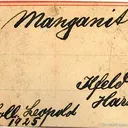 Manganit
Ilfeld
Harz
Coll. Leopold
1925